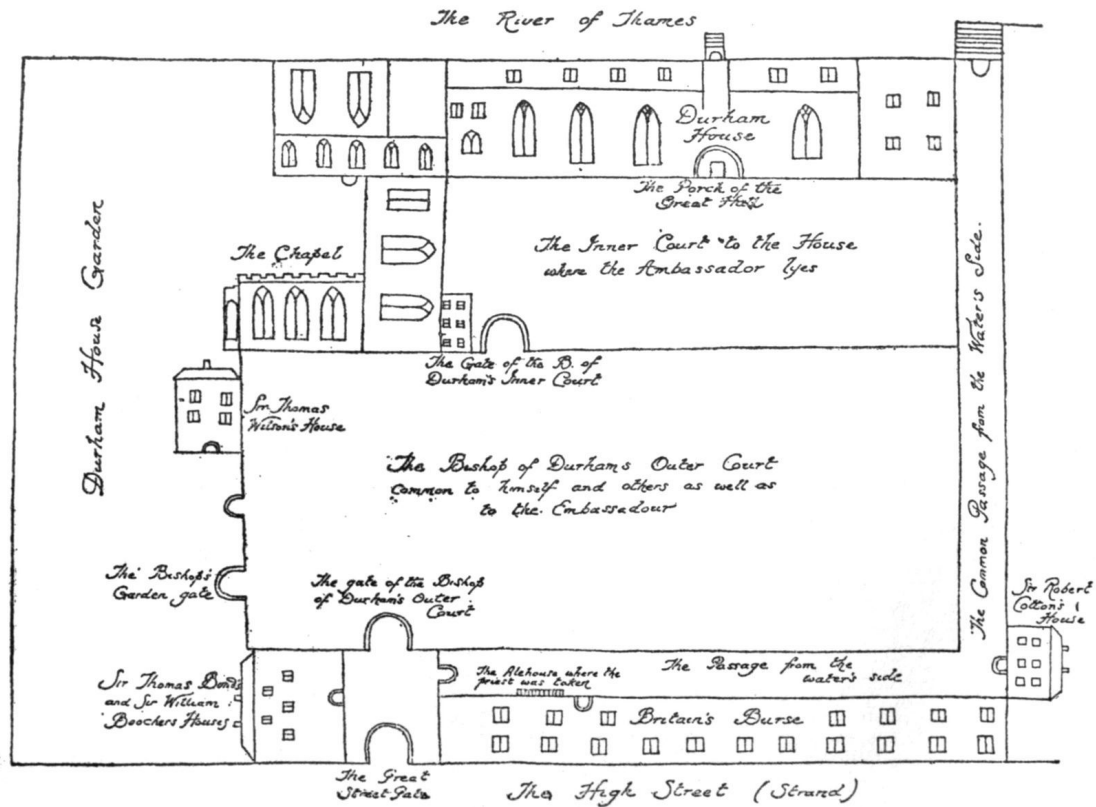 The River of Thames
Durham
House
The Porch of the
Great Hall
Durham House Garden
The Chapel
The Inner Court to the House
where the Ambassador lyes
The Common Passage from the Water's Side.
The Gate of the B. of
Durham's Inner Court
Sir Thomas
Wilson's House
The Bishop of Durhams Outer Court
common to himself and others as well as
to the Embassadour
The Bishop's
Garden gate
The gate of the Bishop
of Durham's Outer
Court
Sir Robert
Cotton's
House
Sir Thomas Bonds
and Sir William
Boochers Houses
The Alehouse where the
priest was taken
The Passage from the
water's side
Britain's Burse
The Great
Street Gate
The High Street (Strand)